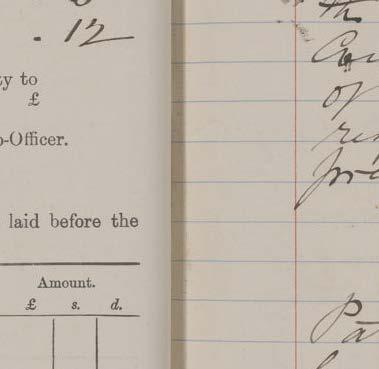 . 12
ty to
£
o-Officer.
laid before the
Amount.
£ s. d.
th
Cou
of
res
pre
Pa